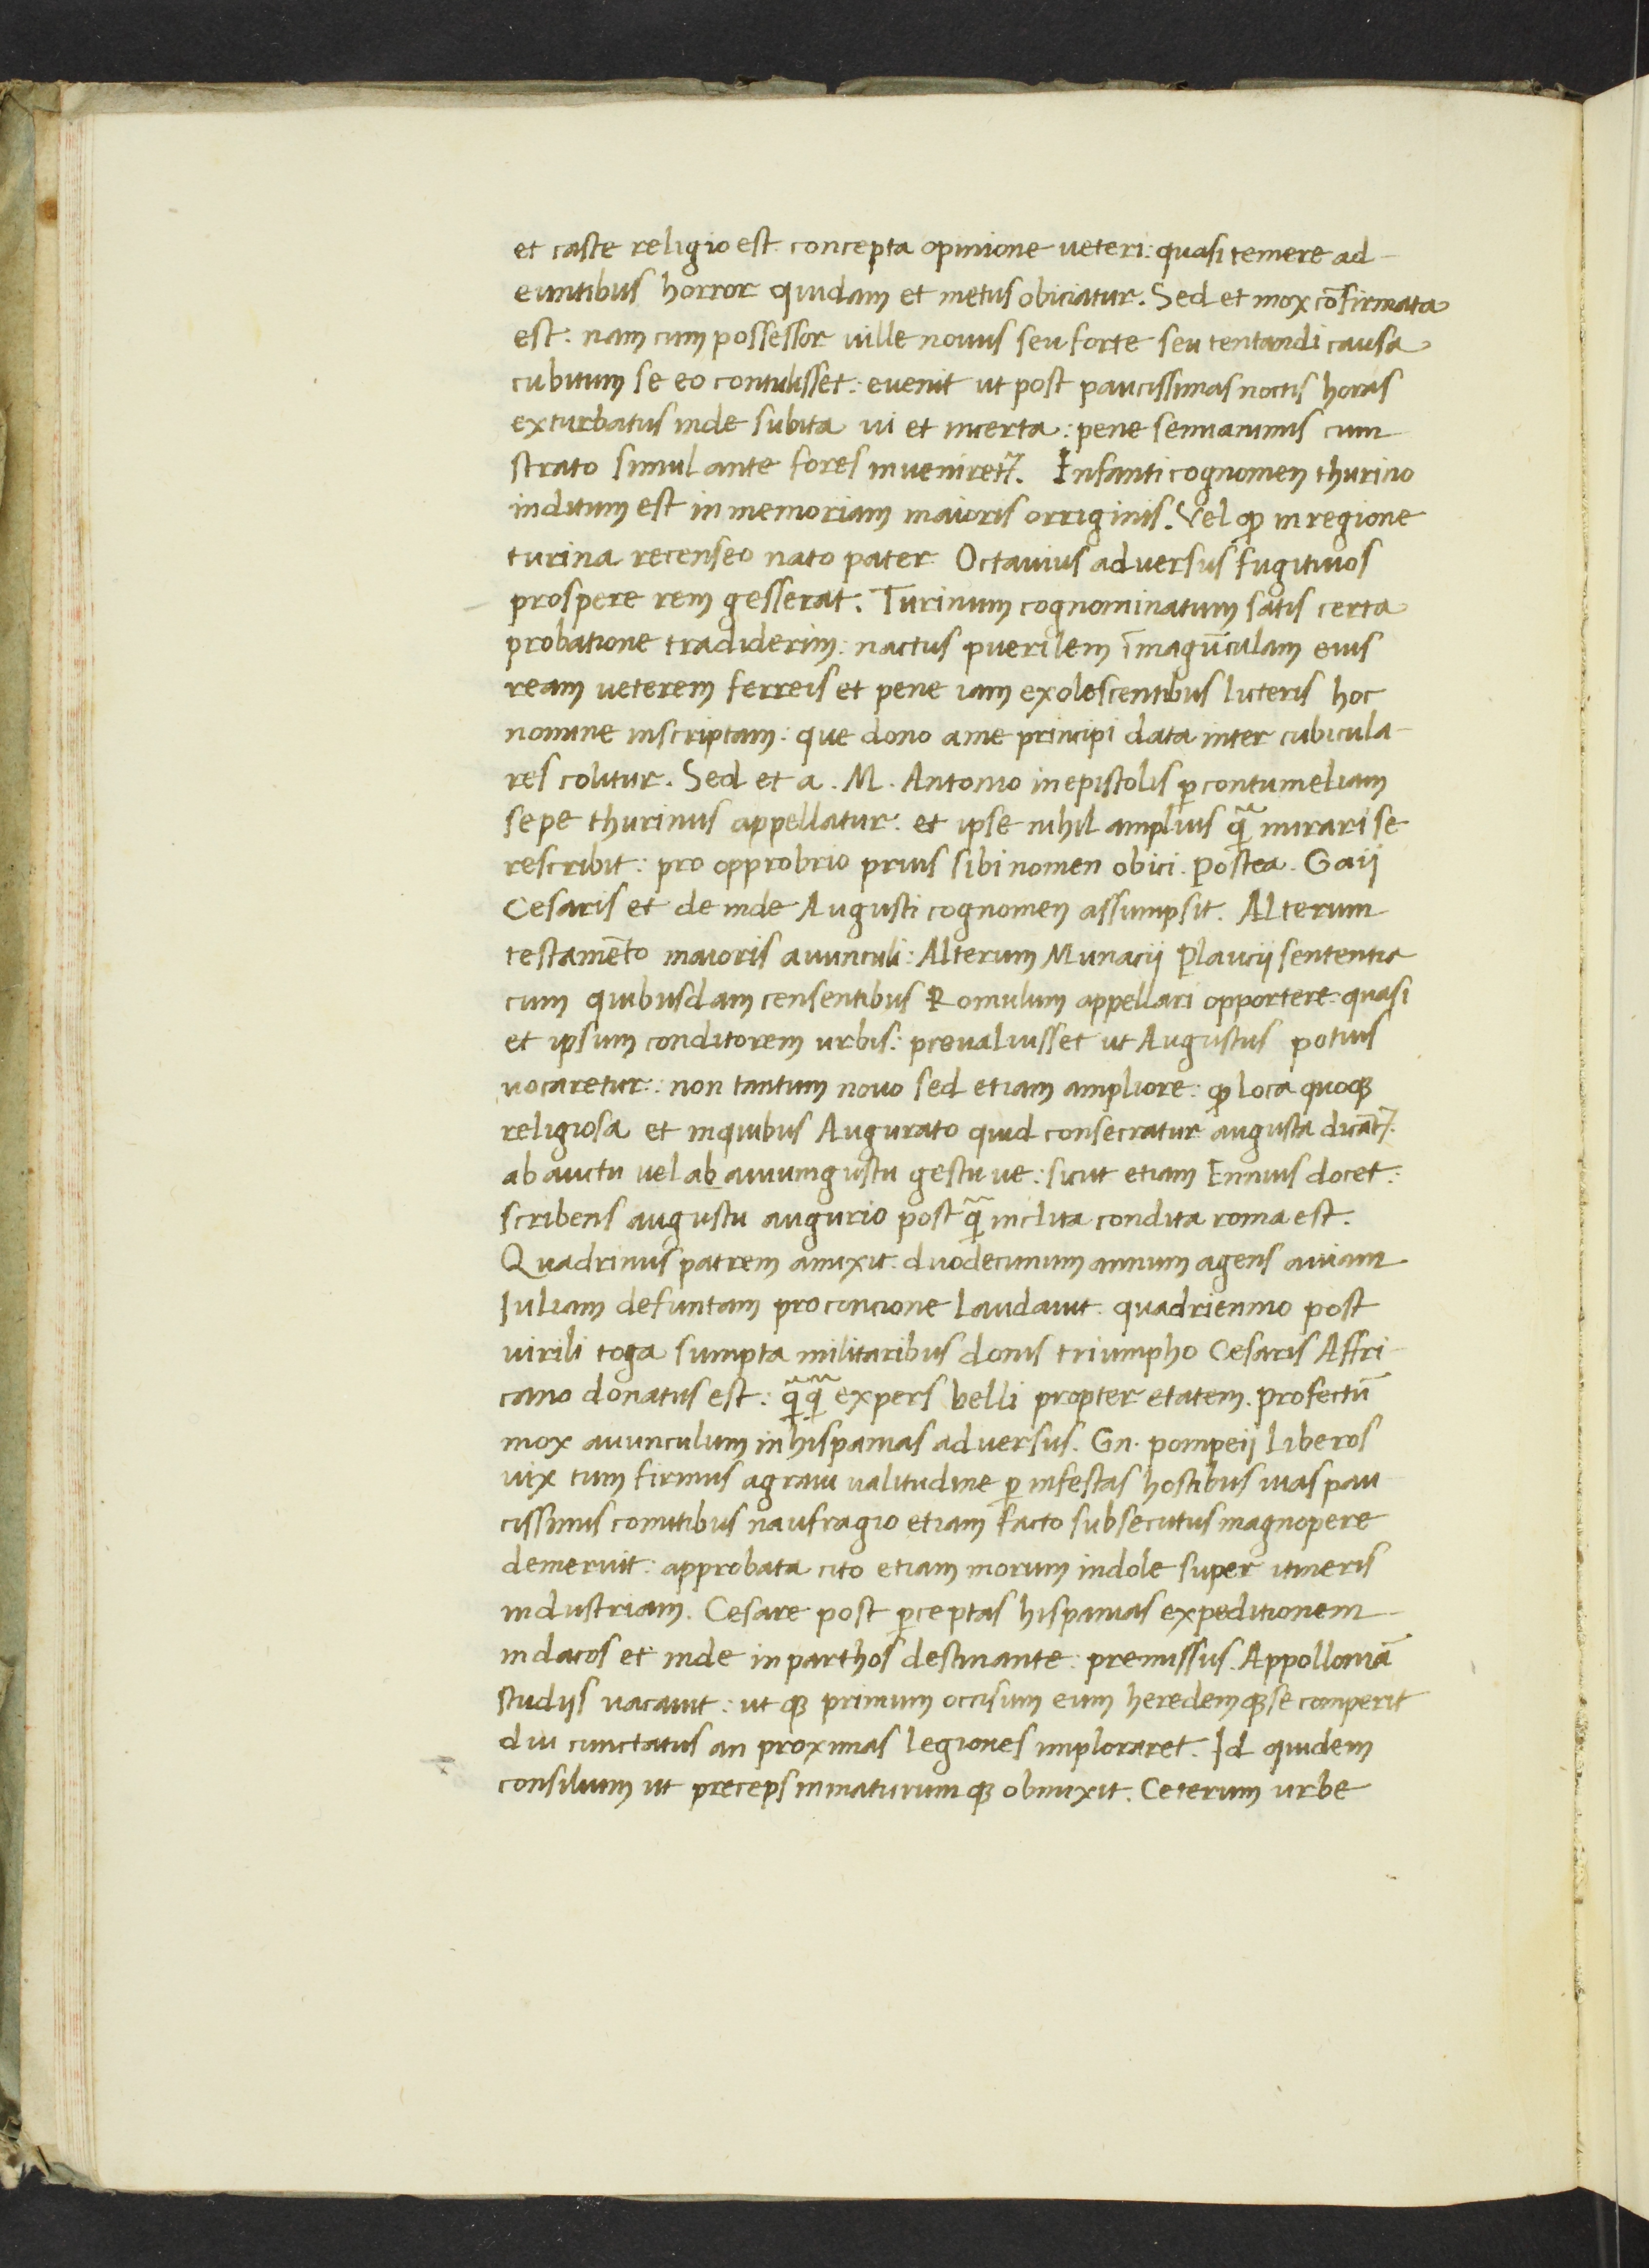 et caste religio est. concepta opinione ueteri: quasi temere ad-
euntibus horror quidam et metus obiciatur. Sed et mox cōfirmata
est: nam cum possessor uille nouus seu forte seu tentandi causa
cubitum se eo contulisset: euenit ut post paucissimas noctis horas
exturbatus inde subita ui et incerta: pene semianimis cum
strato simul ante fores inueniretꝛ. Infanti cognomen thurino
inditum est in memoriam maioris orriginis. Vel ꝙ in regione
turina recenseo nato pater Octauius aduersus fugitiuos
prospere rem gesserat. Turinum cognominatum satis certa
probatione tradiderim: nactus puerilem īmagūculam eius
ream ueterem ferreis et pene iam exolescentibus licteris hoc
nomine inscriptam: que dono ame principi data inter cubicula-
res colitur. Sed et a. M. Antonio in epistolis ꝑ contumeliam
sepe thurinus appellatur: et ipse nihil amplius qᷓ mirari se
rescribit: pro opprobrio prius sibi nomen obici. Postea. Gaij
Cesaris et deinde Augusti cognomen assumpsit. Alterum
testamēto maioris auunculi: Alterum Munacij Plaucij sententia
cum quibusdam censentibus Romulum appellari opportere: quasi
et ipsum conditorem urbis: preualuisset ut Augustus potius
uocaretur: non tantum nouo sed etiam ampliore: ꝙ loca quoqꝫ
religiosa et inquibus Augurato quid consecratur augusta dicātꝛ.
ab auctu uel ab auiumgustu gestuue: sicut etiam Ennius docet:
scribens augustu augurio postqᷓ inclita condita roma est.
Quadrinus patrem amixit: duodecimum annum agens auiam
Iuliam defuntam pro concione laudauit: quadriennio post
uirili toga sumpta militaribus donis triumpho Cesaris Affri-
cano donatus est: qᷓqᷓ expers belli propter etatem. Profectū
mox auunculum in hispanias aduersus. Gn. pompeij liberos
uix tum firmus agraui ualitudine ꝑ infestas hostibus uias pau
cissimis comitibus naufragio etiam facto subsecutus magnopere
demeruit: approbata cito etiam morum indole super itineris
industriam. Cesare post ꝑceptas hispanias expeditionem
indacos et inde in parthos destinante: premissus. Appolloniā
studijs uacauit: ut qꝫ primum occisum eum heredemqꝫ se comperit
diu cunctatus an proximas legiones imploraret. Id quidem
consilium ut preceps inmaturumqꝫ obmixit. Ceterum urbe